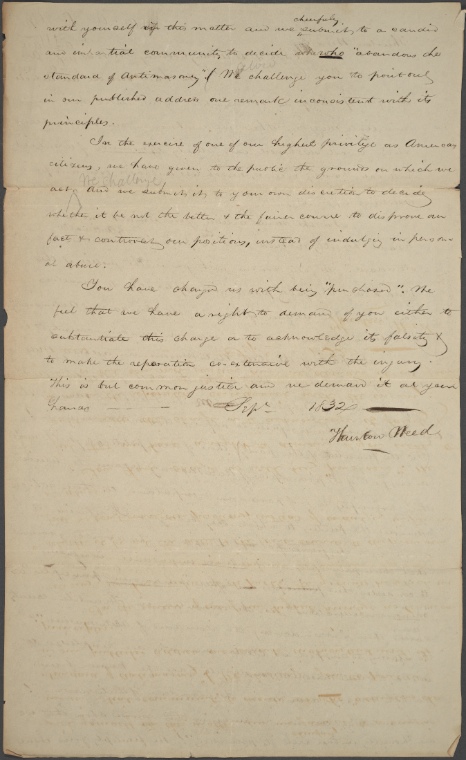 cheerfully
with yourself up the matter and we submit, to a candid
and impartial community to decide who "abandons the
standard of Antimasonry"! We challenge you to point out
in our published address one remark inconsistent with its
principles.
In the exercise of one of our highest privilege as American
citizens, we have given to the public the grounds on which we
act. And we submit it to your own discretion to decide
We challenge
whether it be not the better & the fairer course to disprove our
fact & controvert our positions, instead of indulging in person
al abuse.
You have charged us with being "purchased". We
feel that we have a right to demand of you either to
substantiate this charge or to acknowledge its falsity &
to make the reparation co-extensive with the injury.
This is but common justice and we demand it at your
hands — Sept. 1832
Thurlow Weed